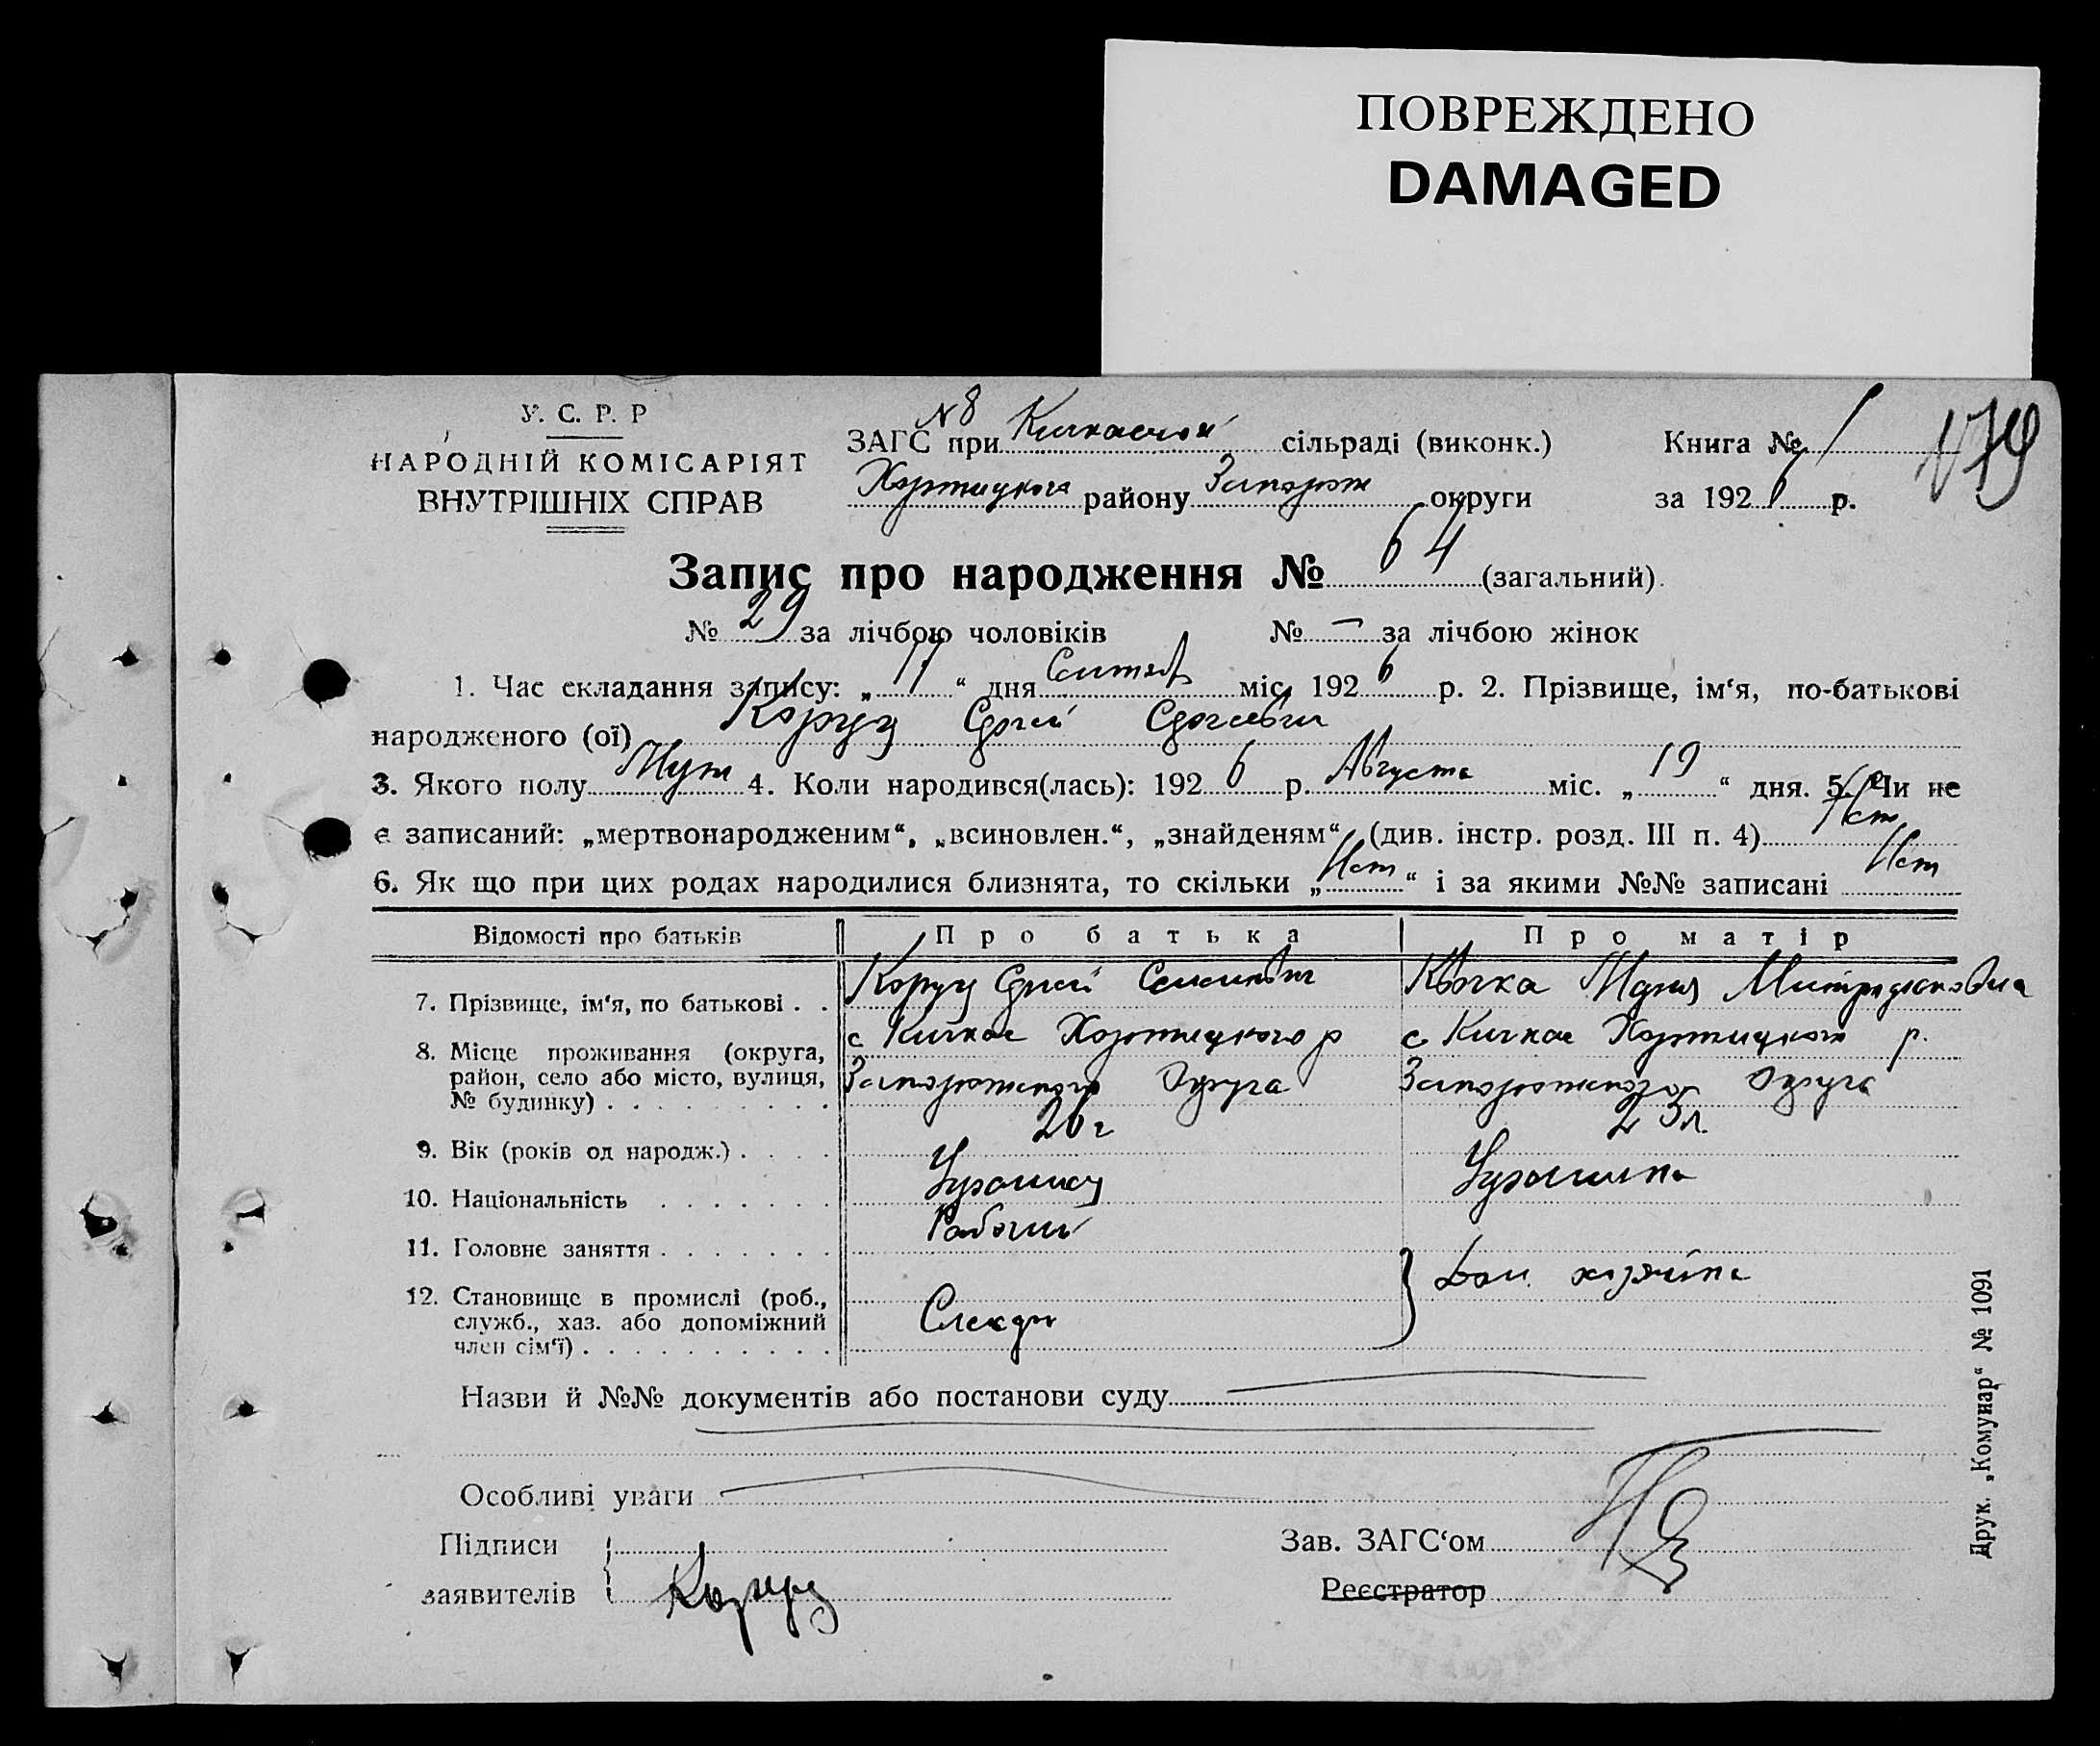 ПОВРЕЖДЕНО
DAMAGED
У. С. Р. Р
НАРОДНІЙ КОМІСАРІЯТ
ВНУТРІШНІХ СПРАВ
N 8
ЗАГС при Кичкаской сільраді (виконк.)
Хортицкого району Запорож округи
Книга № 1
за 1926 р.
179
Запис про народження № 64 (загальний).
№ 29 за лічбою чоловіків № — за лічбою жінок
1. Час складання запису: „ 17 “ дня Сентяб міс. 1926 р. 2. Прізвище, ім‘я, по-батькові
народженого (ої) Сергей Сергеевич
3. Якого полу Муж 4. Коли народився(лась): 1926 р. Августа міс. „ 19 “ дня. 5. Чи не
є записаний: „мертвонародженим“, „всиновлен.“, „знайденям“ (див. інстр. розд. III п. 4) Нет
6. Як що при цих родах народилися близнята, то скільки „ Нет “ і за якими №№ записані Нет
Відомості про батьків Про батька Про матір
7. Прізвище, ім‘я, по батькові . . Сергей Семенович
8. Місце проживання (округа, с Кичкас Хортицкого р с Кичкас Хортицкого р.
район, село або місто, вулиця, Запорожского Округа Запорожского Округа
№ будинку) . . . . . . . . .
9. Вік (років од народж.) . . . . 26 г 25 л.
10. Національність . . . . . . . Украинец Украинка
11. Головне заняття . . . . . . . Рабочий
12. Становище в промислі (роб., Дом. хозяйка
служб., хаз. або допоміжний Слесарь
член сім‘ї) . . . . . . . . . . .
Назви й №№ документів або постанови суду
Особливі уваги
Підписи
заявителів
Зав. ЗАГС‘ом
Реєстратор
Друк. „Комунар“ № 1091